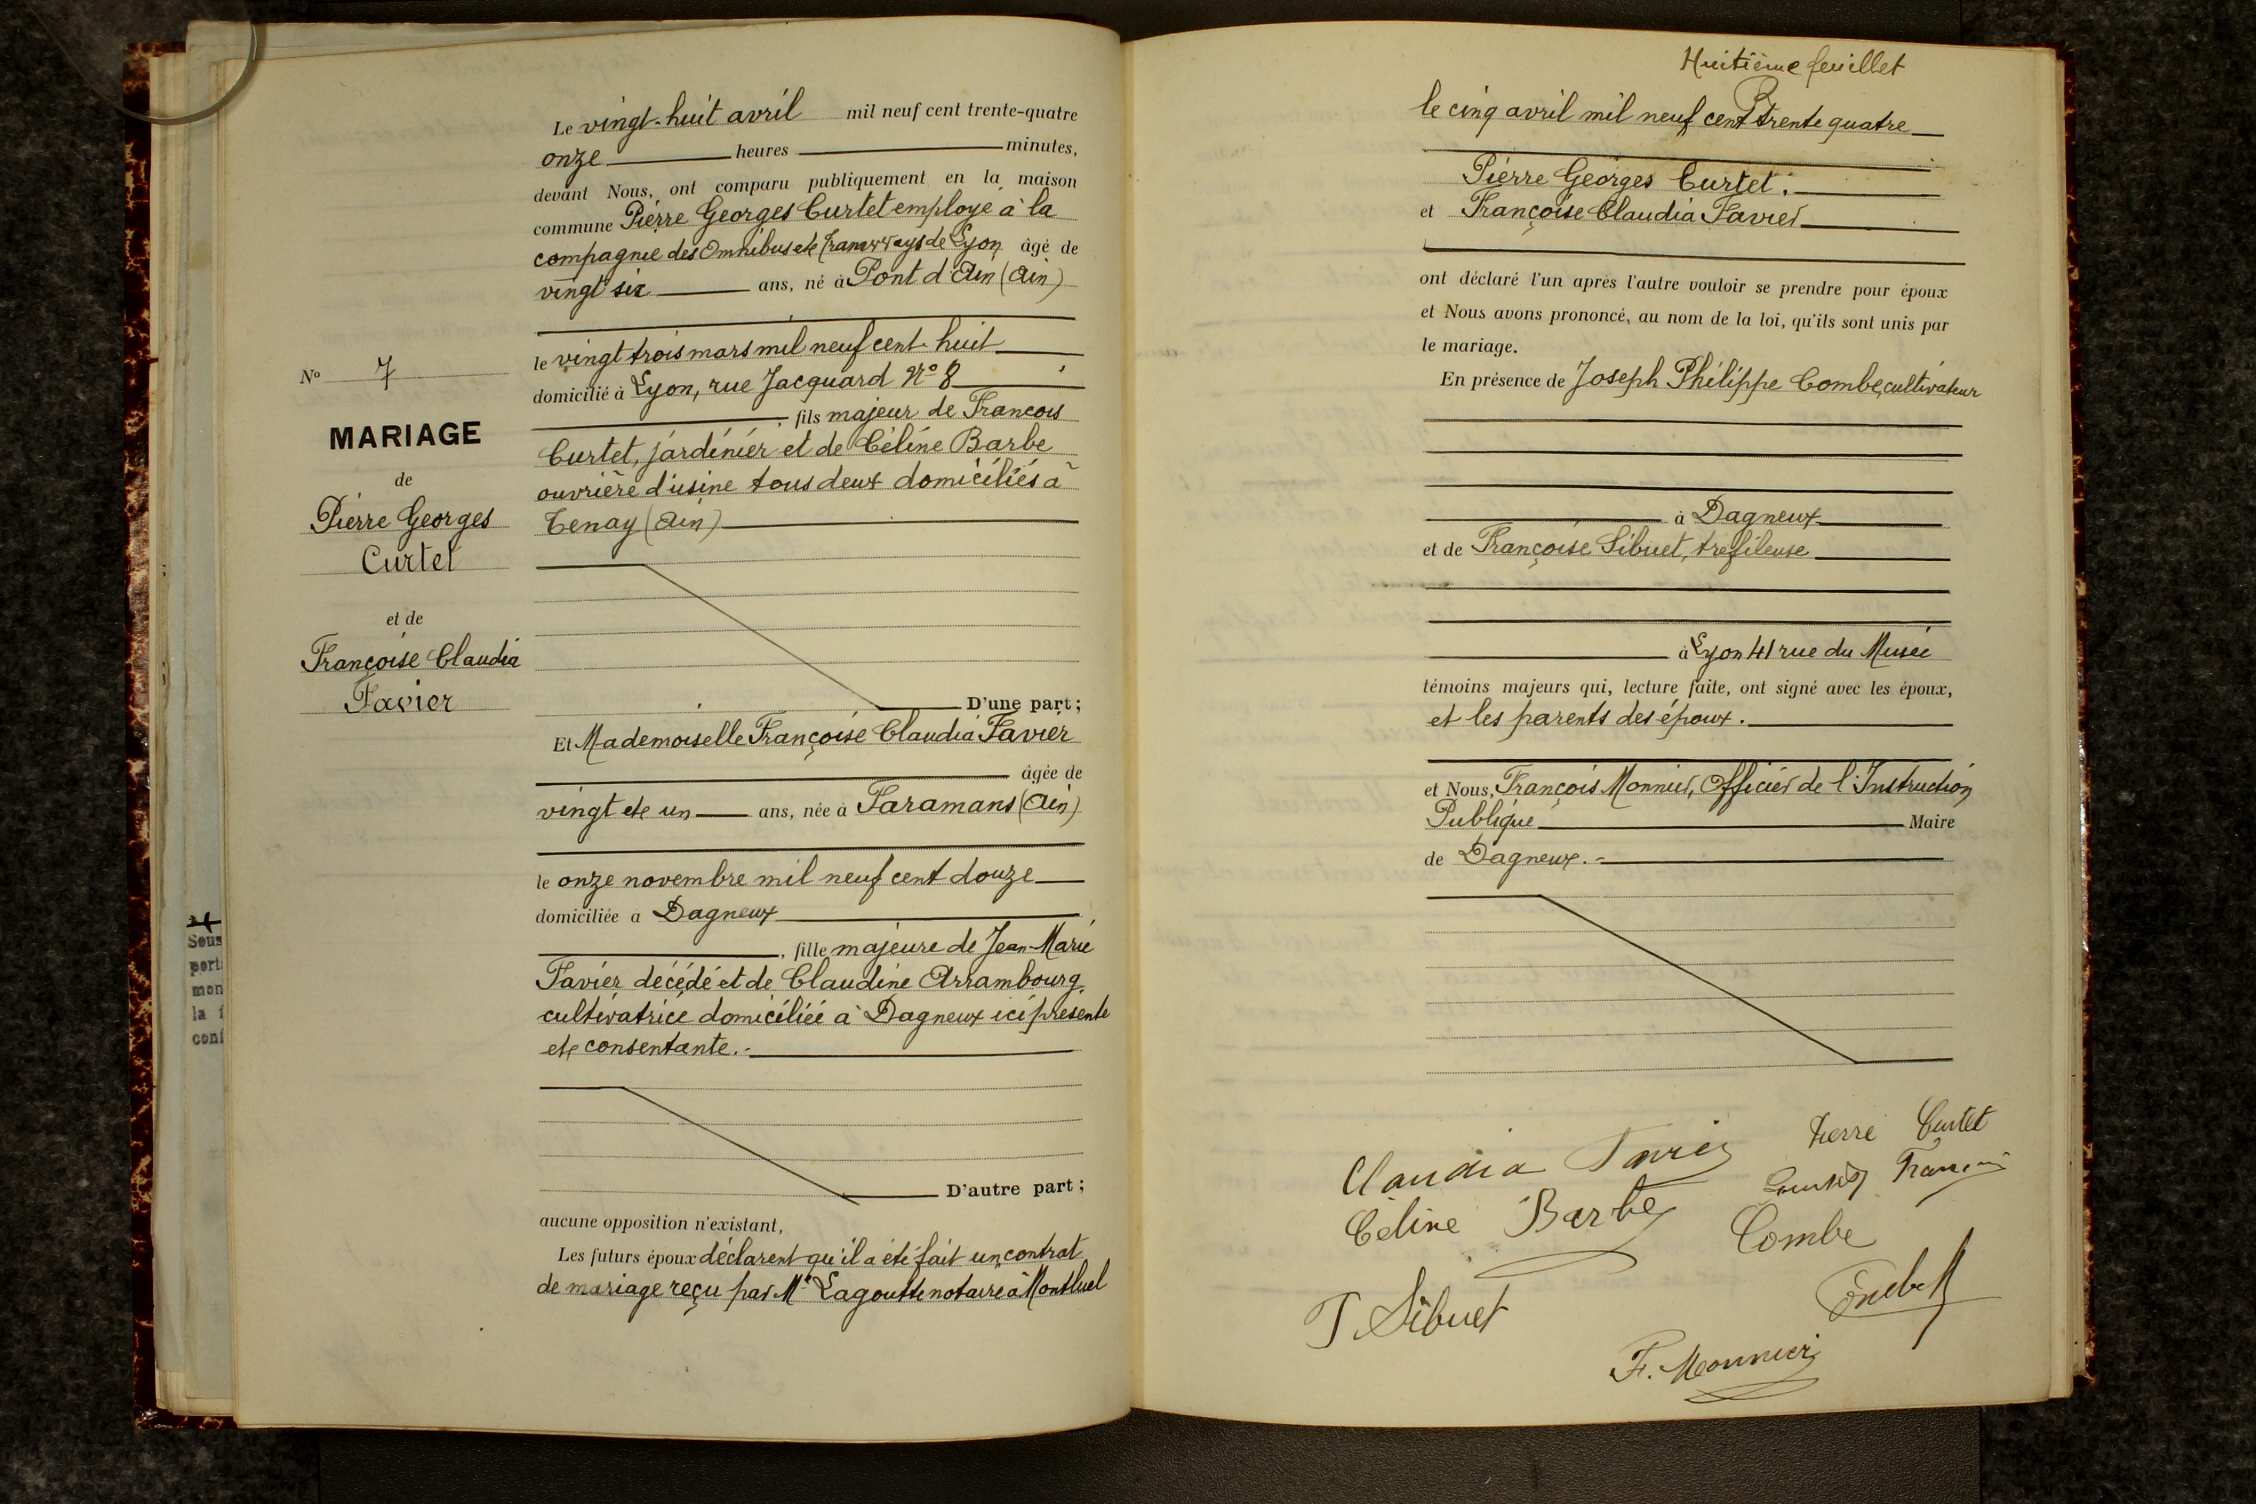 Le vingt-huit avril mil neuf cent trente-quatre
onze heures minutes,
devant Nous, ont comparu publiquement en la maison
commune Pierre Georges Curtet employé à la
compagnie des Omnibus et Tramways de Lyon âgé de
vingt six ans, né à Pont d'Ain (Ain)
le vingt trois mars mil neuf cent huit
domicilié à Lyon, rue Jacquard N° 8
, fils majeur de François
Curtet, jardinier et de Céline Barbe
ouvrière d'usine tous deux domiciliés à
Tenay (Ain)
D'une part;
Et Mademoiselle Françoise Claudia Favier
âgée de
vingt et un ans, née à Faramans (Ain)
le onze novembre mil neuf cent douze
domiciliée a Dagneux
, fille majeure de Jean-Marie
Favier décédé et de Claudine Arrambourg
cultivatrice domiciliée à Dagneux ici présente
et consentante.-
D'autre part;
aucune opposition n'existant,
Les futurs époux déclarent qu'il a été fait un contrat
de mariage reçu par Me Lagoutte notaire à Montluel
N° 7
MARIAGE
de
Pierre Georges
Curtet
et de
Françoise Claudia
Favier
Sous
port
men
la f
conf
Huitième feuillet
le cinq avril mil neuf cent trente quatre
Pierre Georges Curtet.
et Françoise Claudia Favier
ont déclaré l'un après l'autre vouloir se prendre pour époux
et Nous avons prononcé, au nom de la loi, qu'ils sont unis par
le mariage.
En présence de Joseph Philippe Combe, cultivateur
à Dagneux
et de Françoise Sibuet, trefileuse
à Lyon 41 rue du Musée
témoins majeurs qui, lecture faite, ont signé avec les époux,
et les parents des époux.
et Nous, François Monnier, Officier de l'Instruction
Publique Maire
de Dagneux.-
Claudia Favier Pierre Curtet
Céline Barbe Curtet François
Combe
F. Sibuet
F. Monnier